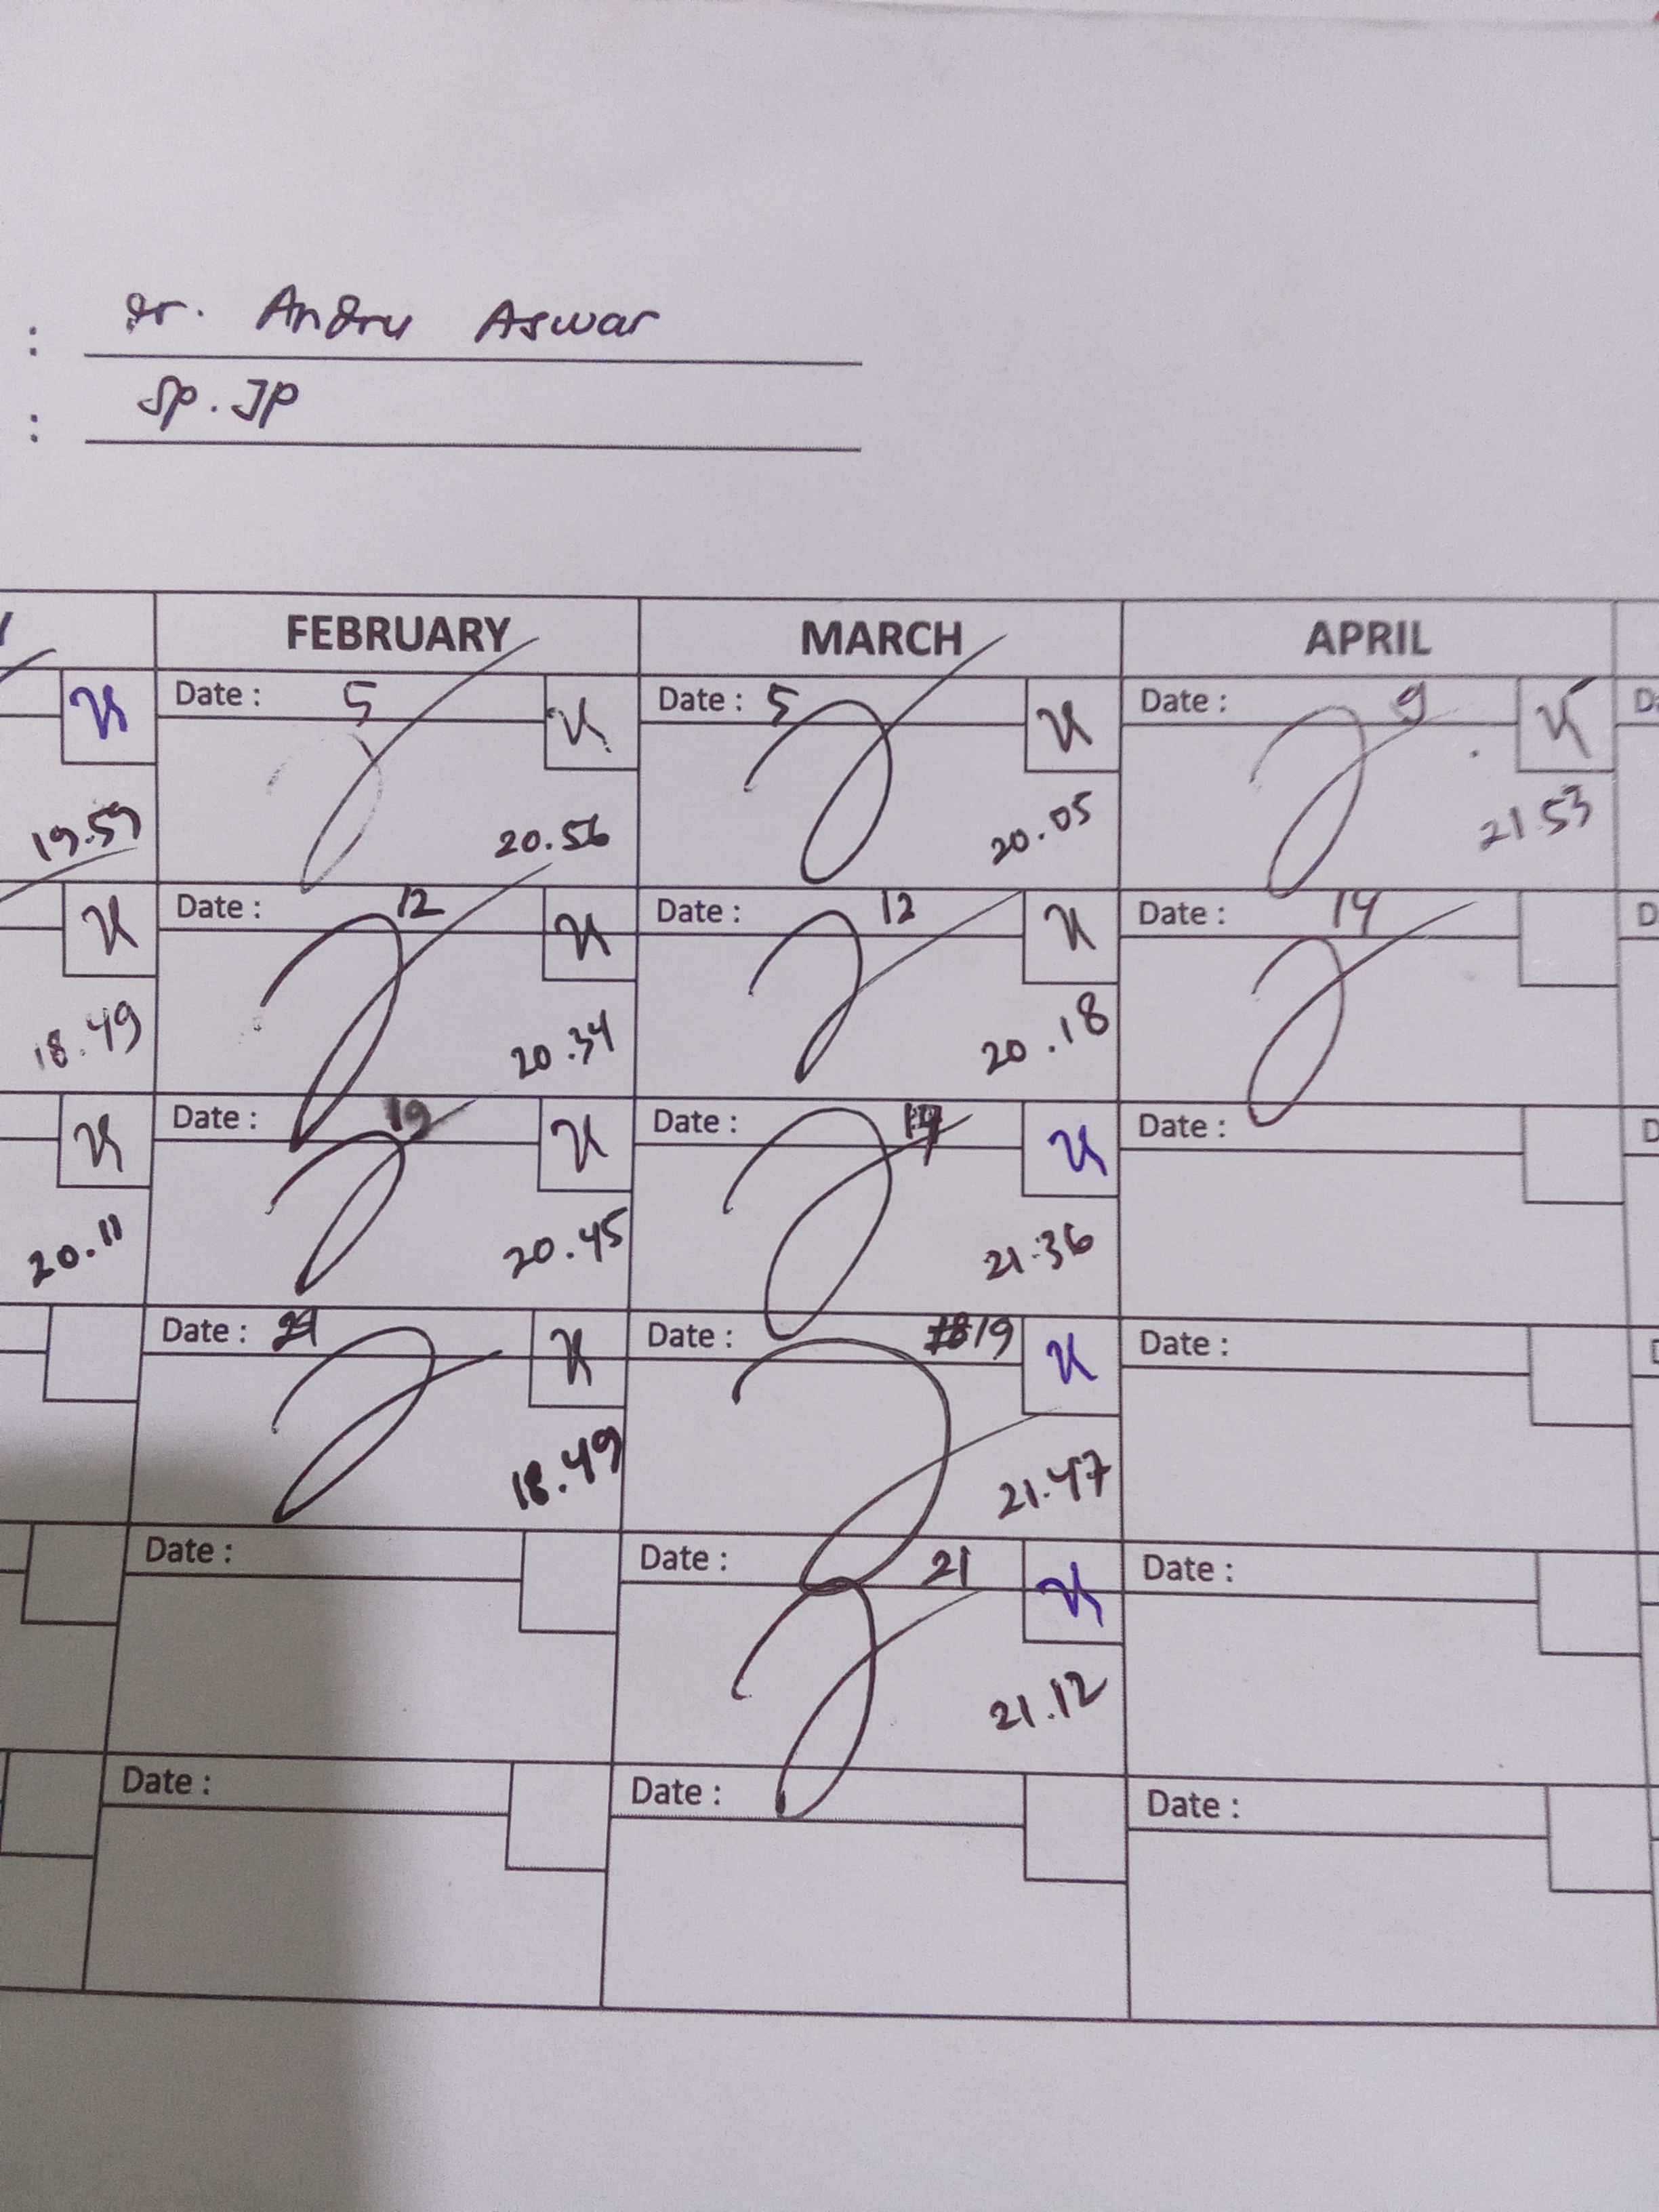 : dr. Andru Aswar
: Sp. JP
FEBRUARY MARCH APRIL
Date : 5 Date : 5 Date : 9
20.56 20.05 21.53
Date : 12 Date : 12 Date : 14
18.49 20.34 20.18
Date : 19 Date : Date :
20.11 20.45 21.36
Date : Date : 19 Date :
18.49 21.47
Date : Date : 21 Date :
21.12
Date : Date : Date :